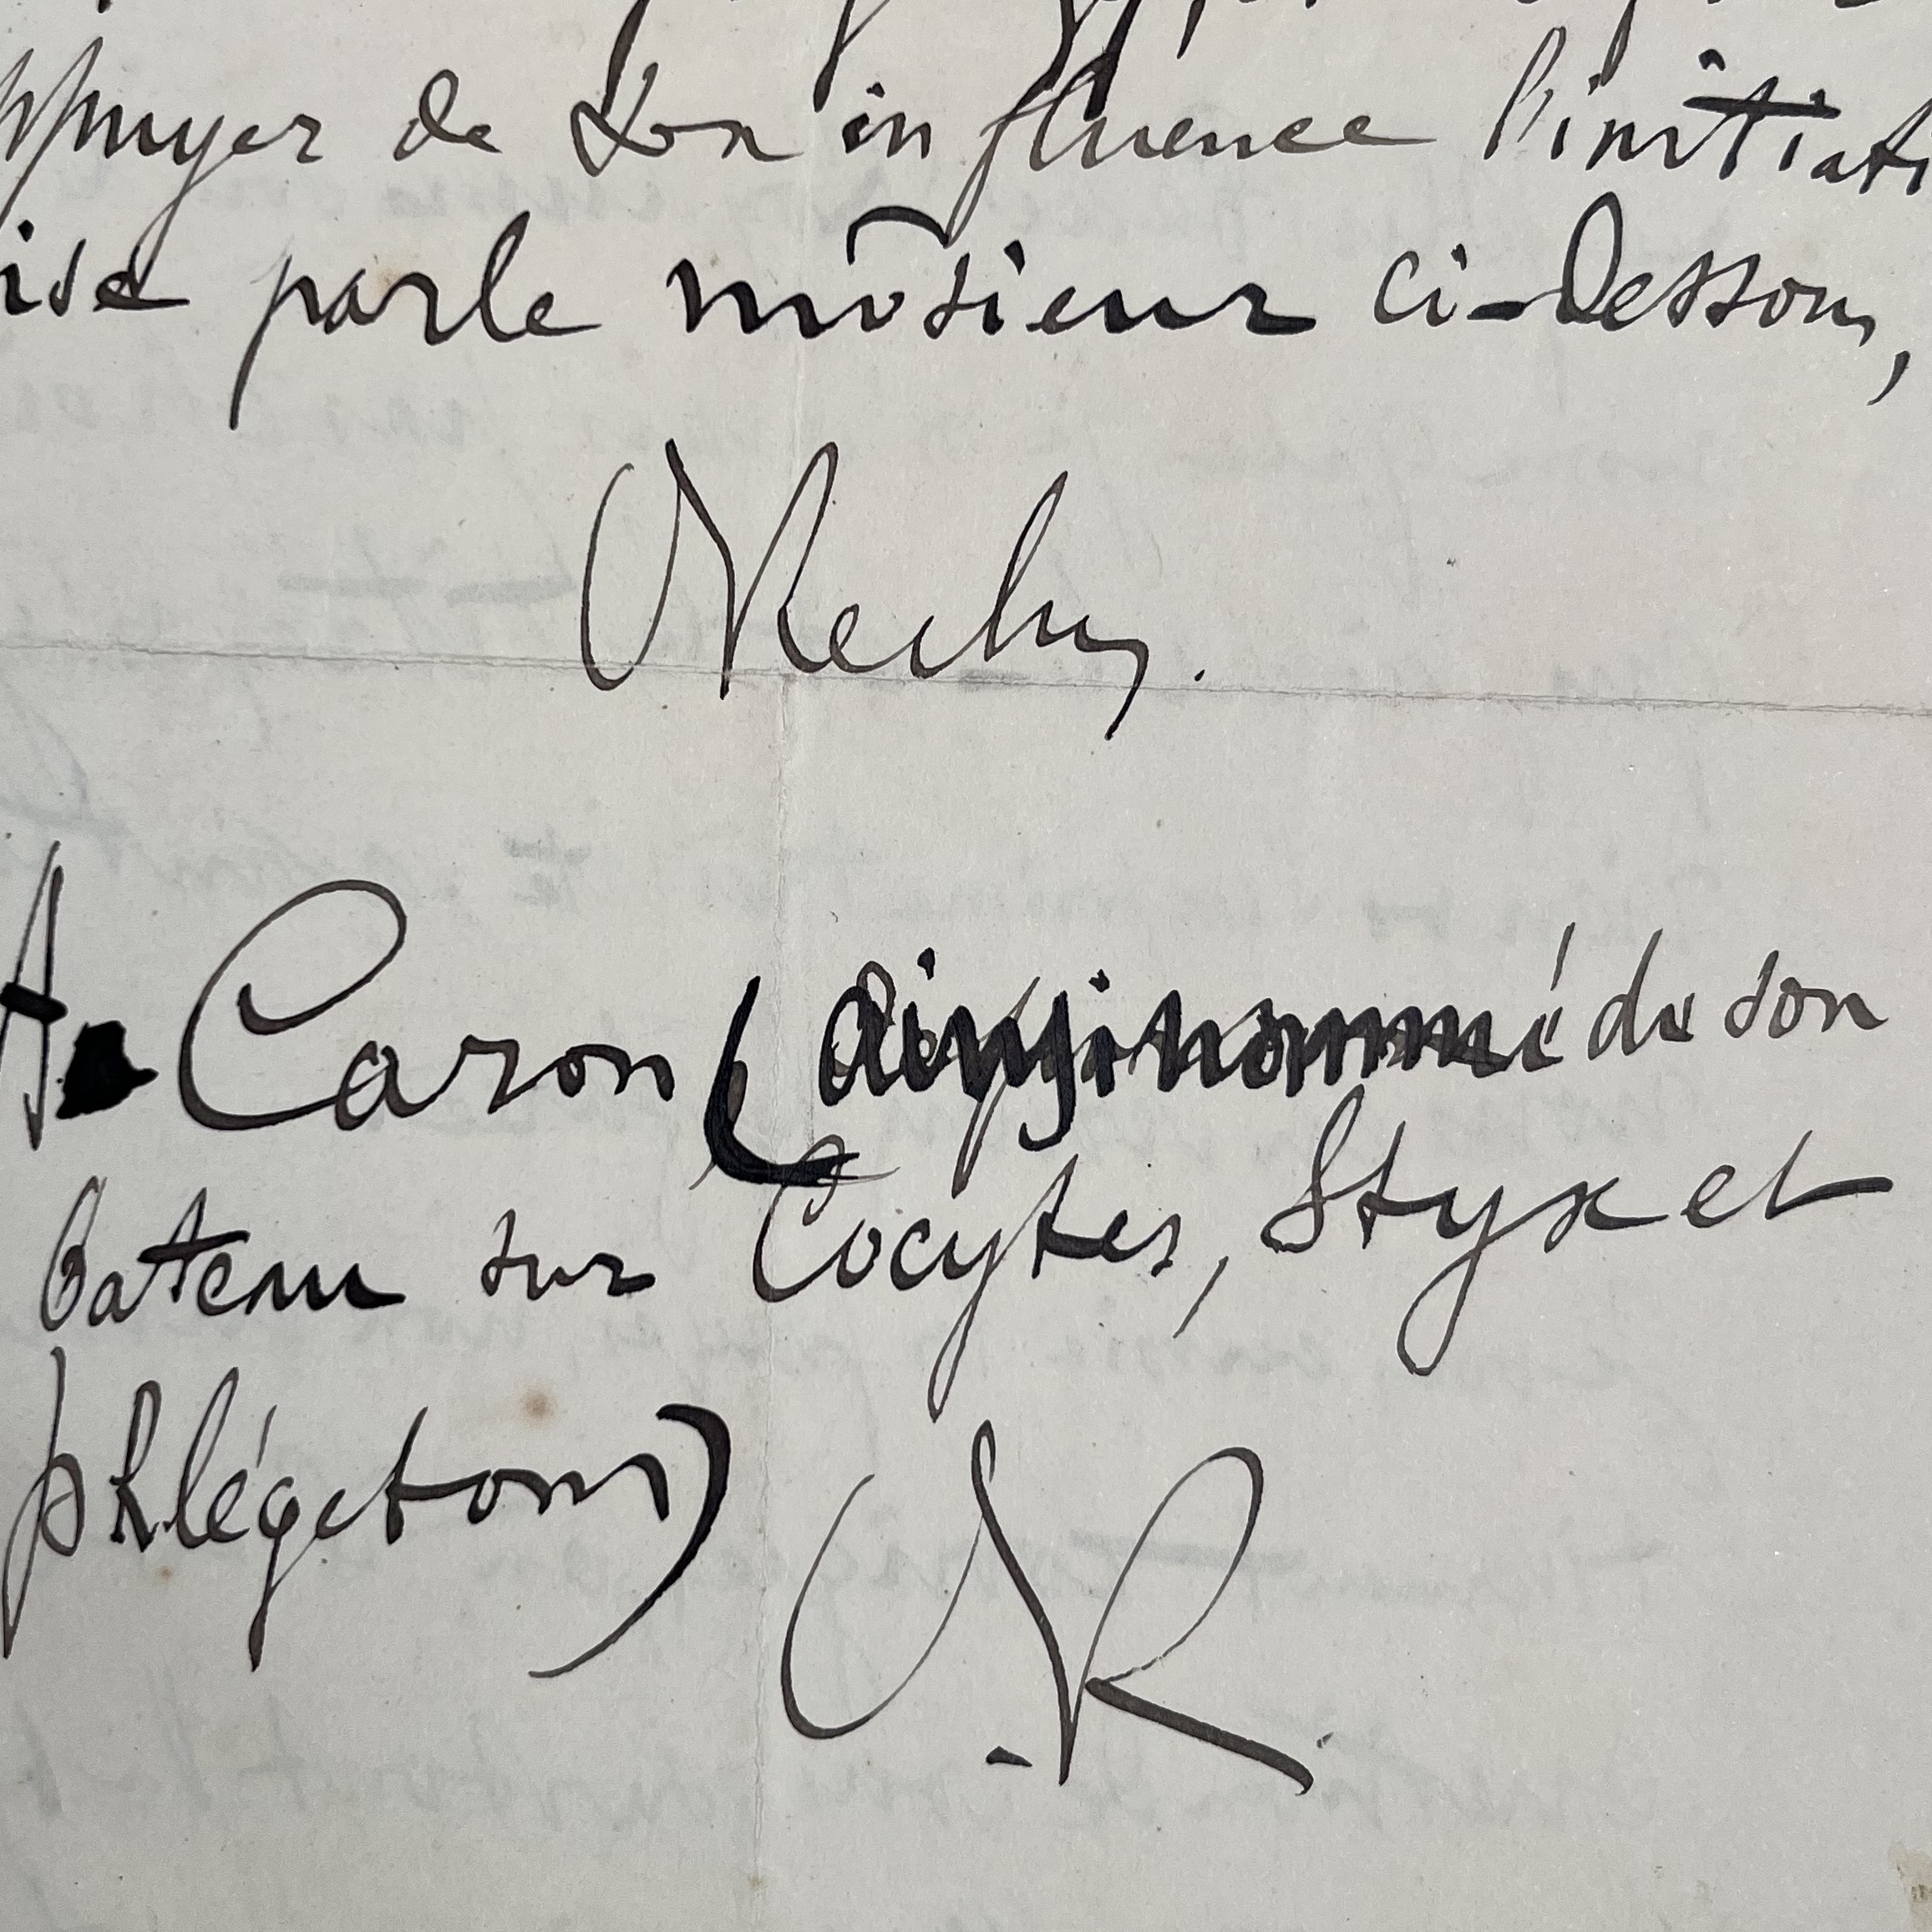 ppuyer de ton influence l'initiati
ise par le môsieur ci-dessous,
A Caron (ainsi nommé de son
bateau sur Cocytes, Styx et
phlégetons)
R.